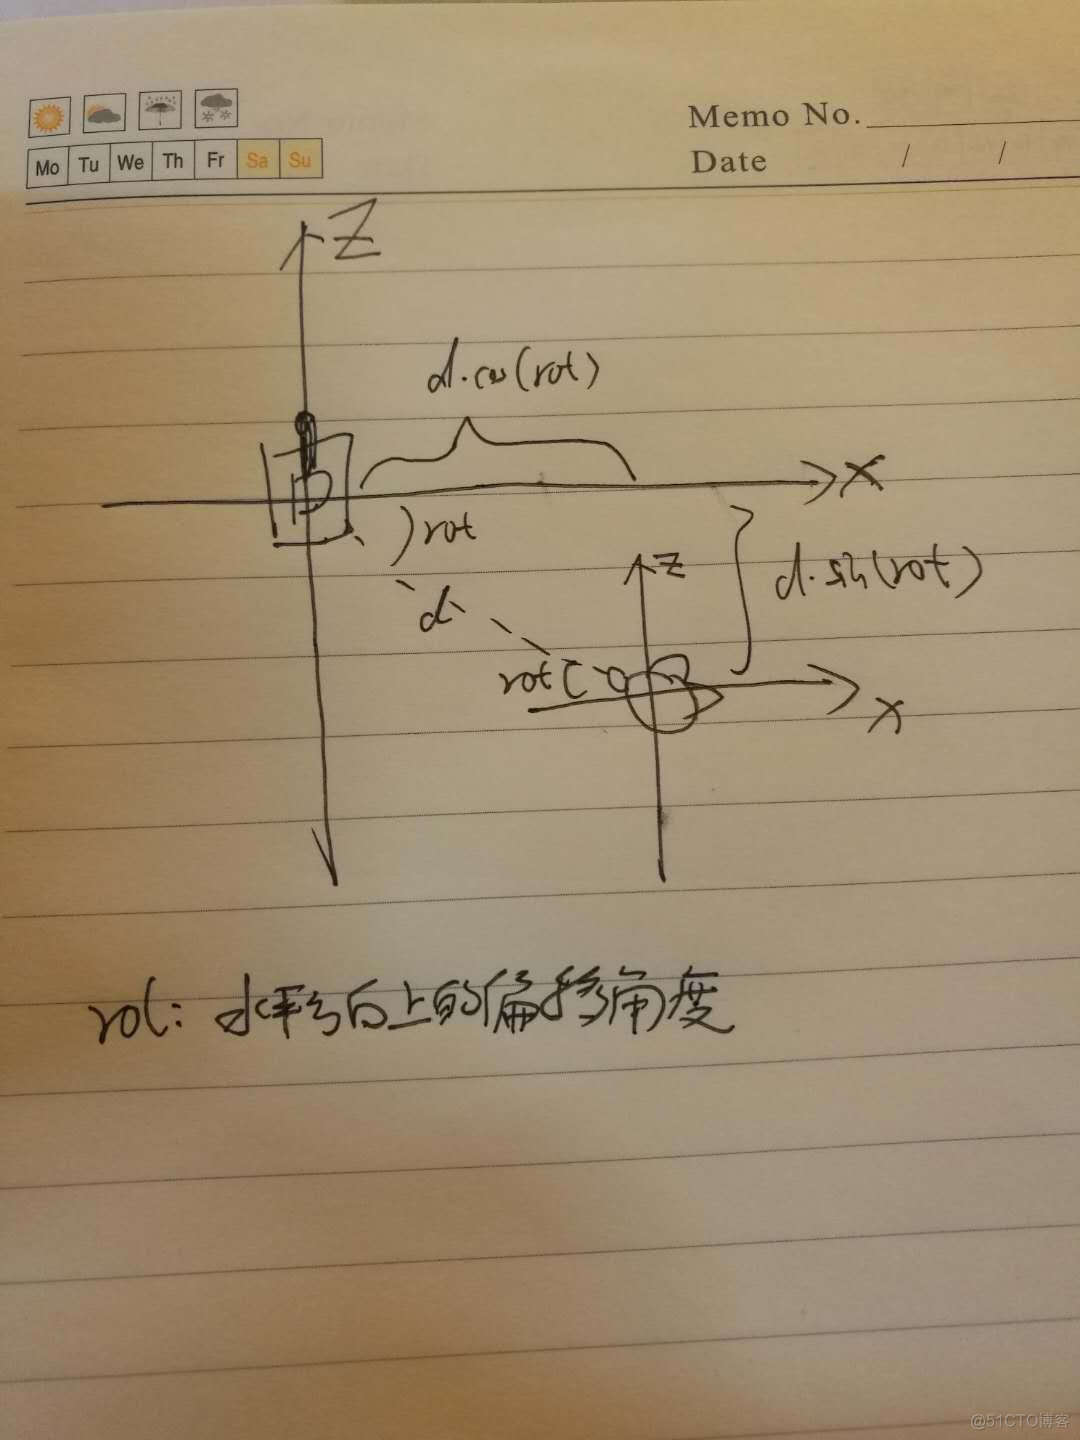 Memo No.
Mo Tu We Th Fr Sa Su
Date / /
Z
d·cos(rot)
X
)rot
Z
d·sin(rot)
d
rot
X
rot: 水平方向上的偏移角度
@51CTO博客